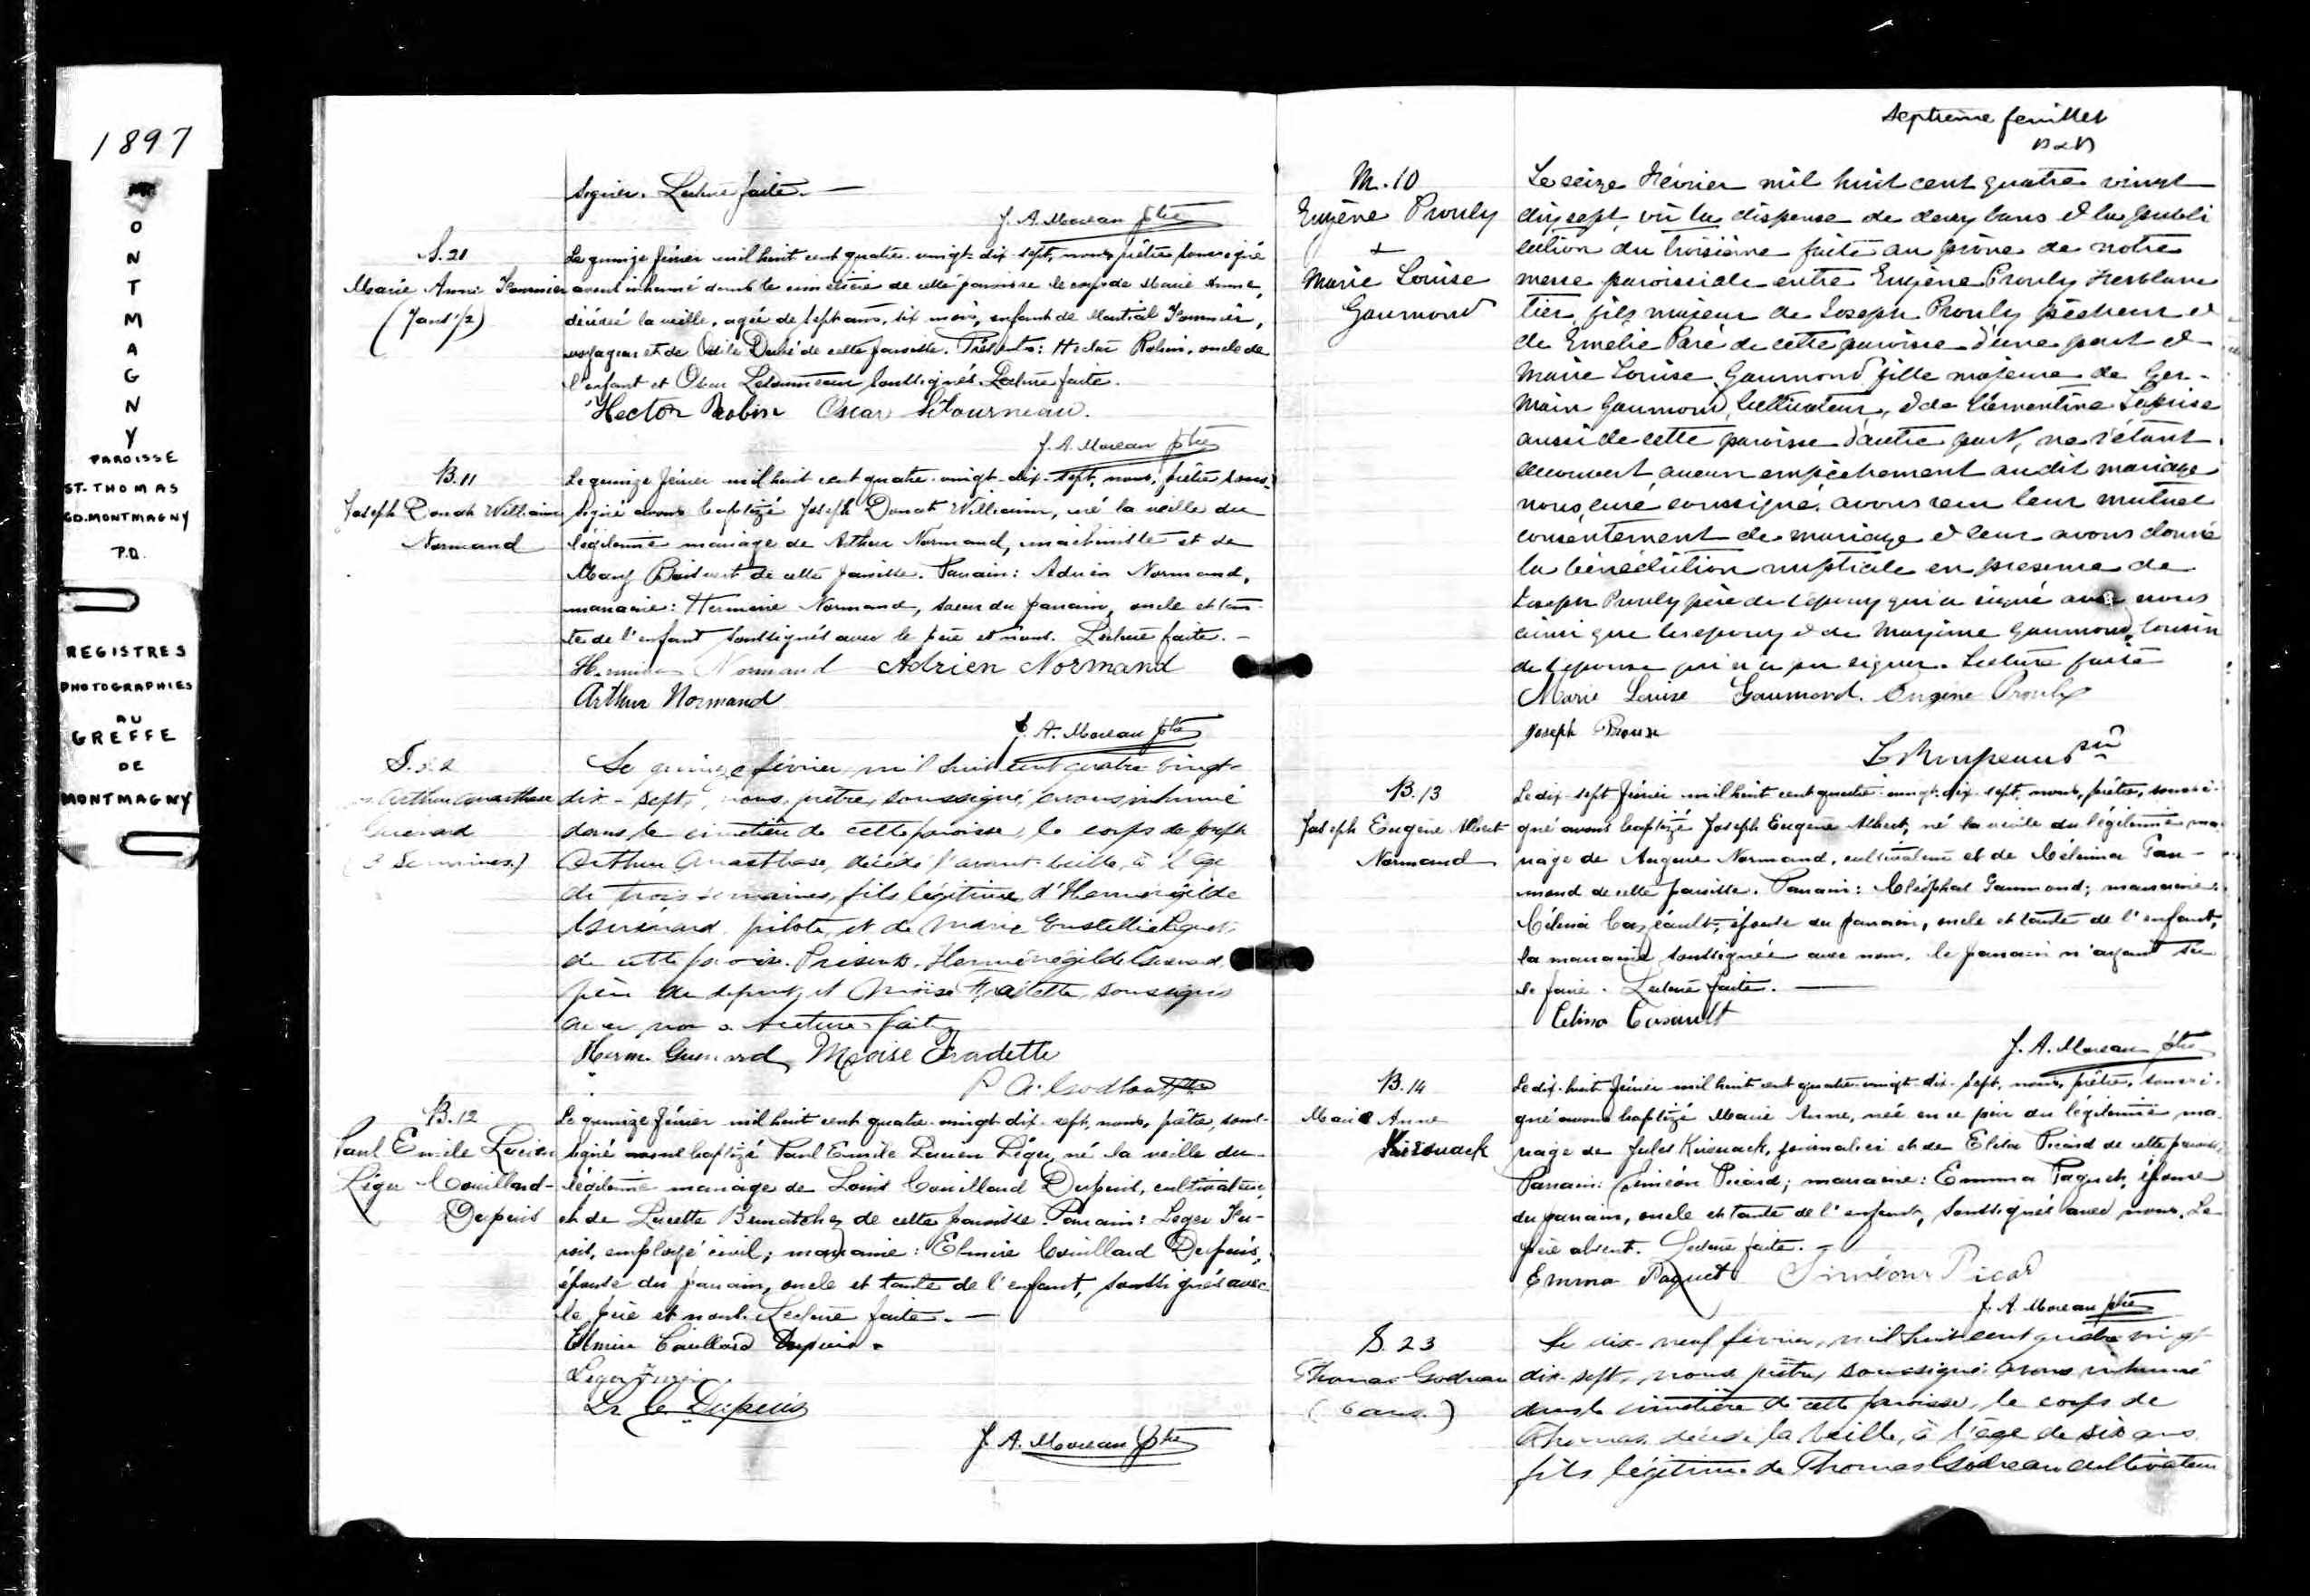 1897
MONTMAGNY
PAROISSE
ST. THOMAS
CO. MONTMAGNY
P.Q.
REGISTRES
PHOTOGRAPHIES
AU
GREFFE
DE
MONTMAGNY
signer. Lecture faite. —
J. A. Moreau Ptre
S. 21
Marie Anne Fournier
(7 ans 1/2)
Le quinze février mil huit cent quatre-vingt-dix-sept, nous, prêtre soussigné
avons inhumé dans le cimetière de cette paroisse le corps de Marie Anne,
décédée la veille, agée de sept ans, six mois, enfant de Martial Fournier,
voyageur et de Odile Dubé de cette paroisse. Présents: Hector Robin, oncle de
l'enfant et Oscar Letourneau soussignés. Lecture faite.
Hector Robin Oscar Létourneau.
J. A. Moreau Ptre
B. 11
Joseph Donat William
Normand
Le quinze février mil huit cent quatre-vingt-dix-sept, nous, prêtre sous-
signé avons baptizé Joseph Donat William, né la veille du
légitime mariage de Arthur Normand, machiniste et de
Mary Boisvert de cette paroisse. Parrain: Adrien Normand,
marraine: Hermine Normand, soeur du parrain, oncle et tan-
te de l'enfant soussignés avec le père et nous. Lecture faite. —
Hermine Normand Adrien Normand
Arthur Normand
J. A. Moreau Ptre
S. 22
Arthur Anasthase
Guenard
(3 Semaines.)
Le quinze février, mil huit cent quatre-vingt-
dix-sept, nous, prêtre, soussigné, avons inhumé
dans le cimetière de cette paroisse, le corps de Joseph
Arthur Anasthase, décédé l'avant-veille, à l'âge
de trois semaines, fils légitime d'Herménégilde
Guénard, pilote, et de Marie Eustellie Paquet
de cette paroisse. Présents. Herménégilde Guenard,
père du défunt, et Moïse Fradette, soussignés
avec nous. Lecture faite
Herm. Guenard Moïse Fradette
P. A. Godbout Ptre
B. 12
Paul Emile Lucien
Léger Couillard-
Dupuis
Le quinze février mil huit cent quatre-vingt-dix-sept, nous, prêtre, sous-
signé avons baptizé Paul Emile Lucien Léger, né la veille du
légitime mariage de Louis Couillard Dupuis, cultivateur,
et de Lucette Bernatchez de cette paroisse. Parrain: Leger Fu-
rois, employé civil; marraine: Elmire Couillard Dupuis,
épouse du parrain, oncle et tante de l'enfant, soussignés avec
le père et nous. Lecture faite. —
Elmire Couillard Dupuis.
Leger
Ls C. Dupuis
J. A. Moreau Ptre
Septième feuillet
M. 10
Eugène Proulx
&
Marie Louise
Gaumond
Le seize Février mil huit cent quatre vingt
dix sept, vû la dispense de deux bans & la publi
cation du troisième faite au prône de notre
messe paroissiale entre Eugène Proulx Ferblan
tier, fils majeur de Joseph Proulx pêcheur &
de Emelie Paré de cette paroisse d'une part &
Marie Louise Gaumond fille majeure de Ger-
main Gaumond, Cultivateur, & de Clémentine Laprise
aussi de cette paroisse d'autre part, ne s'étant
découvert aucun empêchement audit mariage
nous, curé soussigné, avons reçu leur mutuel
consentement de mariage & leur avons donné
la bénédiction nuptiale en présence de
Joseph Proulx père de l'époux qui a signé avec nous
ainsi que les epoux & de Maxime Gaumond, cousin
de l'épouse qui n'a pu signer. Lecture faite
Marie Louise Gaumond. Eugène Proulx
Joseph Proux
B. 13
Joseph Eugène Albert
Normand
Le dix-sept février mil huit cent quatre-vingt-dix-sept, nous, prêtre, soussi-
gné avons baptizé Joseph Eugène Albert, né la veille du légitime ma-
riage de Auguste Normand, cultivateur et de Célina Gau-
mond de cette paroisse. Parrain: Cléophas Gaumond; marraine:
Célina Cazeault, épouse du parrain, oncle et tante de l'enfant,
la marraine soussignée avec nous, le parrain n'ayant su
le faire. Lecture faite. —
Celina Casault
J. A. Moreau Ptre
B. 14
Marie Anne
Kirouack
Le dix-huit février mil huit cent quatre-vingt-dix-sept, nous, prêtre, soussi-
gné avons baptizé Marie Anne, née en ce jour du légitime ma-
riage de Jules Kirouack, journalier et de Eliza Picard de cette paroisse
Parrain: Siméon Picard; marraine: Emma Paquet, épouse
du parrain, oncle et tante de l'enfant, soussignés avec nous. Le
père absent. Lecture faite. —
Emma Paquet Siméon Picard
J. A. Moreau Ptre
S. 23
Thomas Godreau
(6 ans.)
Le dix-neuf février, mil huit cent quatre vingt
dix-sept, nous prêtre, soussigné avons inhumé
dans le cimetière de cette paroisse, le corps de
Thomas, décédé la veille, à l'âge de six ans,
fils légitime de Thomas Godreau cultivateur